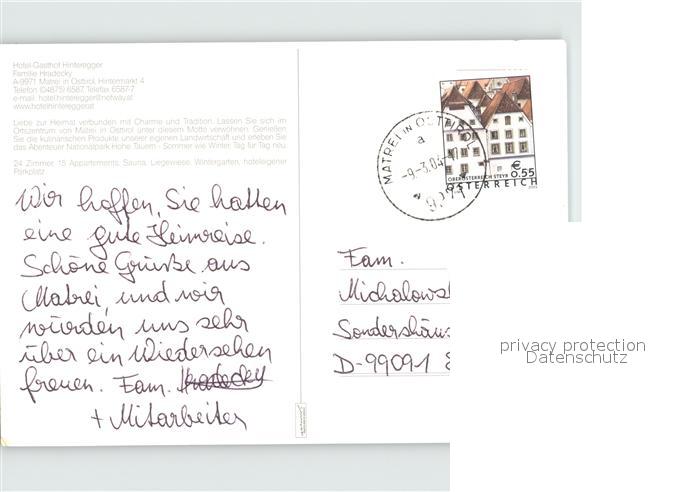 Hotel-Gasthof Hinteregger
Familie Hradecky
A-9971 Matrei in Osttirol, Hintermarkt 4
Telefon (04875) 6587, Telefax 6587-7
e-mail: hotel.hinteregger@netway.at
www.hotelhinteregger.at
Liebe zur Heimat verbunden mit Charme und Tradition. Lassen Sie sich im
Ortszentrum von Matrei in Osttirol unter diesem Motto verwöhnen. Genießen
Sie die kulinarischen Produkte unserer eigenen Landwirtschaft und erleben Sie
das Abenteuer Nationalpark Hohe Tauern - Sommer wie Winter, Tag für Tag neu.
24 Zimmer, 15 Appartements, Sauna, Liegewiese, Wintergarten, hoteleigener
Parkplatz
Wir hoffen, Sie hatten
eine gute Heimreise.
Schöne Grüße aus
Matrei, und wir
würden uns sehr
über ein Wiedersehen
freuen. Fam. Hradecky
+ Mitarbeiter
MATREI IN OSTTIROL
a
-9.-3.04
9971
€
0.55
OBERÖSTERREICH STEYR
ÖSTERREICH
Fam.
Michalows
Sondershäus
D-99091
privacy protection
Datenschutz